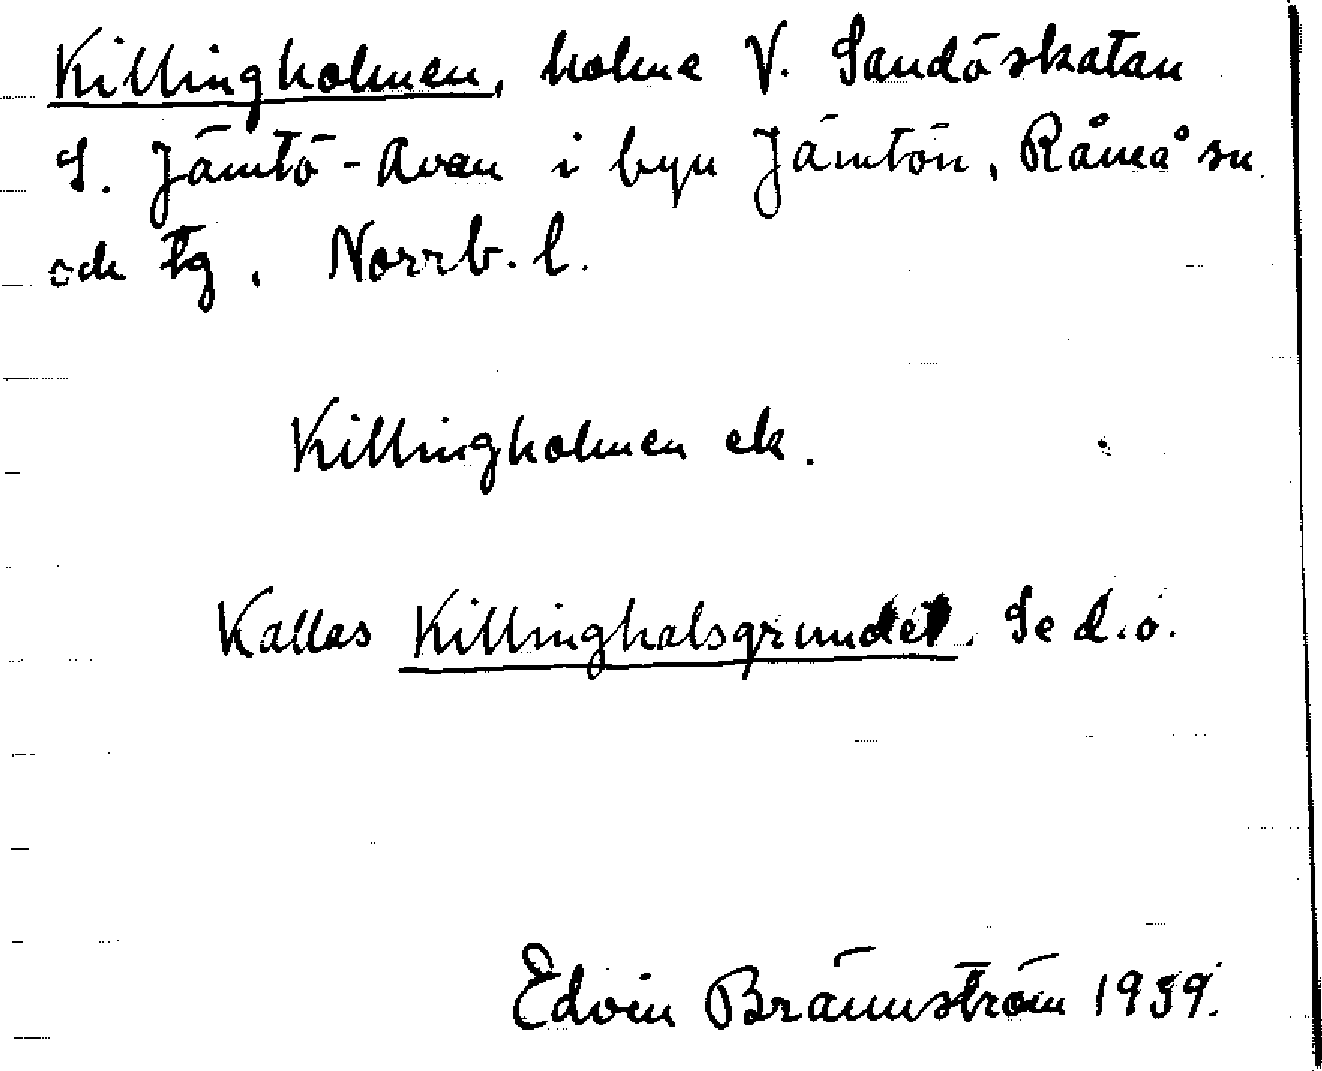 Killingholmen, holme V. Sandöskatan
S. Jämtö-Avan i byn Jämtön, Råneå sn
och tg, Norrb. l.
Killingholmen ek.
Kallas Killinghalsgrundet. Se d.o.
Edvin Brännström 1939.